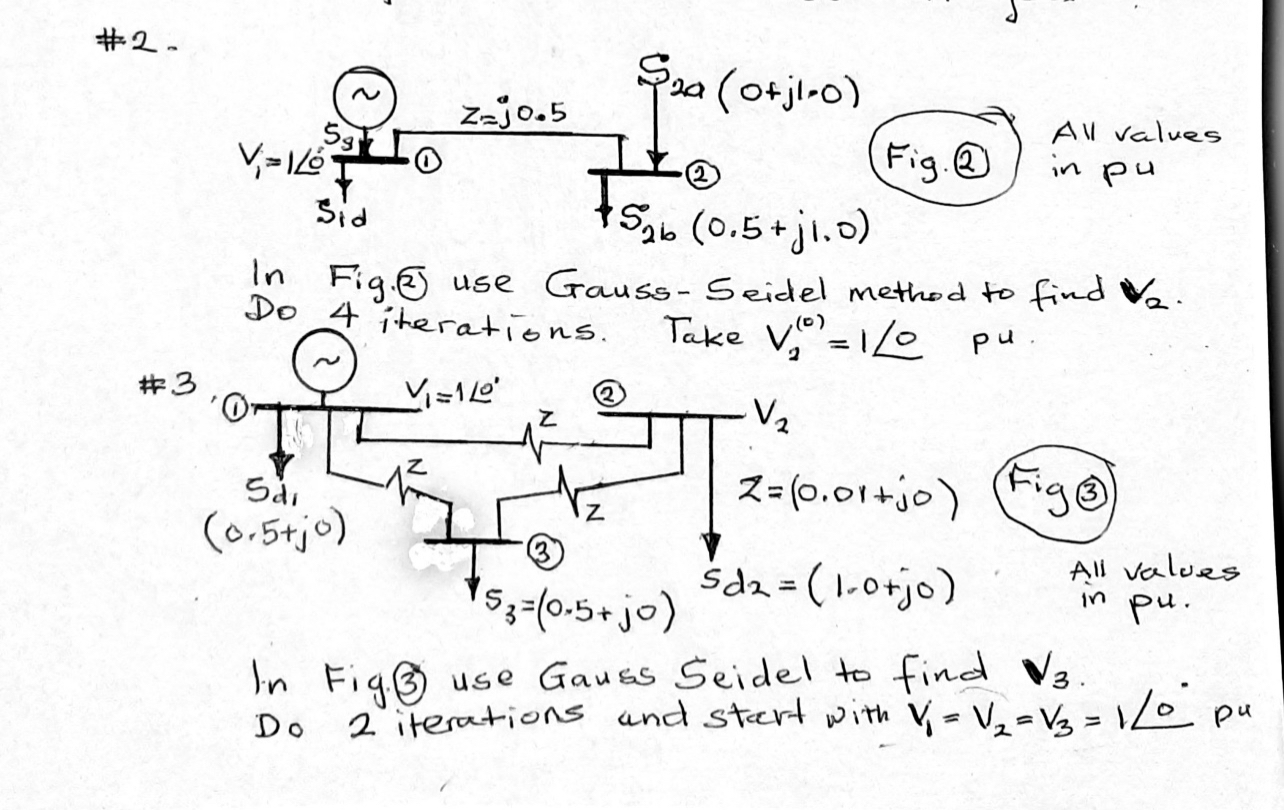 #2.
S2a (0+j1.0)
~
Z=j0.5
Sg
V1=1∠0° ①
②
Fig.②
All values
in pu
S1d
S2b (0.5+j1.0)
In Fig.② use Gauss-Seidel method to find V2.
Do 4 iterations. Take V2^(0) = 1∠0 pu
~
#3. ① V1=1∠0° ② V2
Z
Z
Z
Sd1
(0.5+j0)
Z=(0.01+j0)
Fig ③
③
S3=(0.5+j0)
Sd2=(1.0+j0)
All values
in pu.
In Fig.③ use Gauss Seidel to find V3.
Do 2 iterations and start with V1 = V2 = V3 = 1∠0° pu